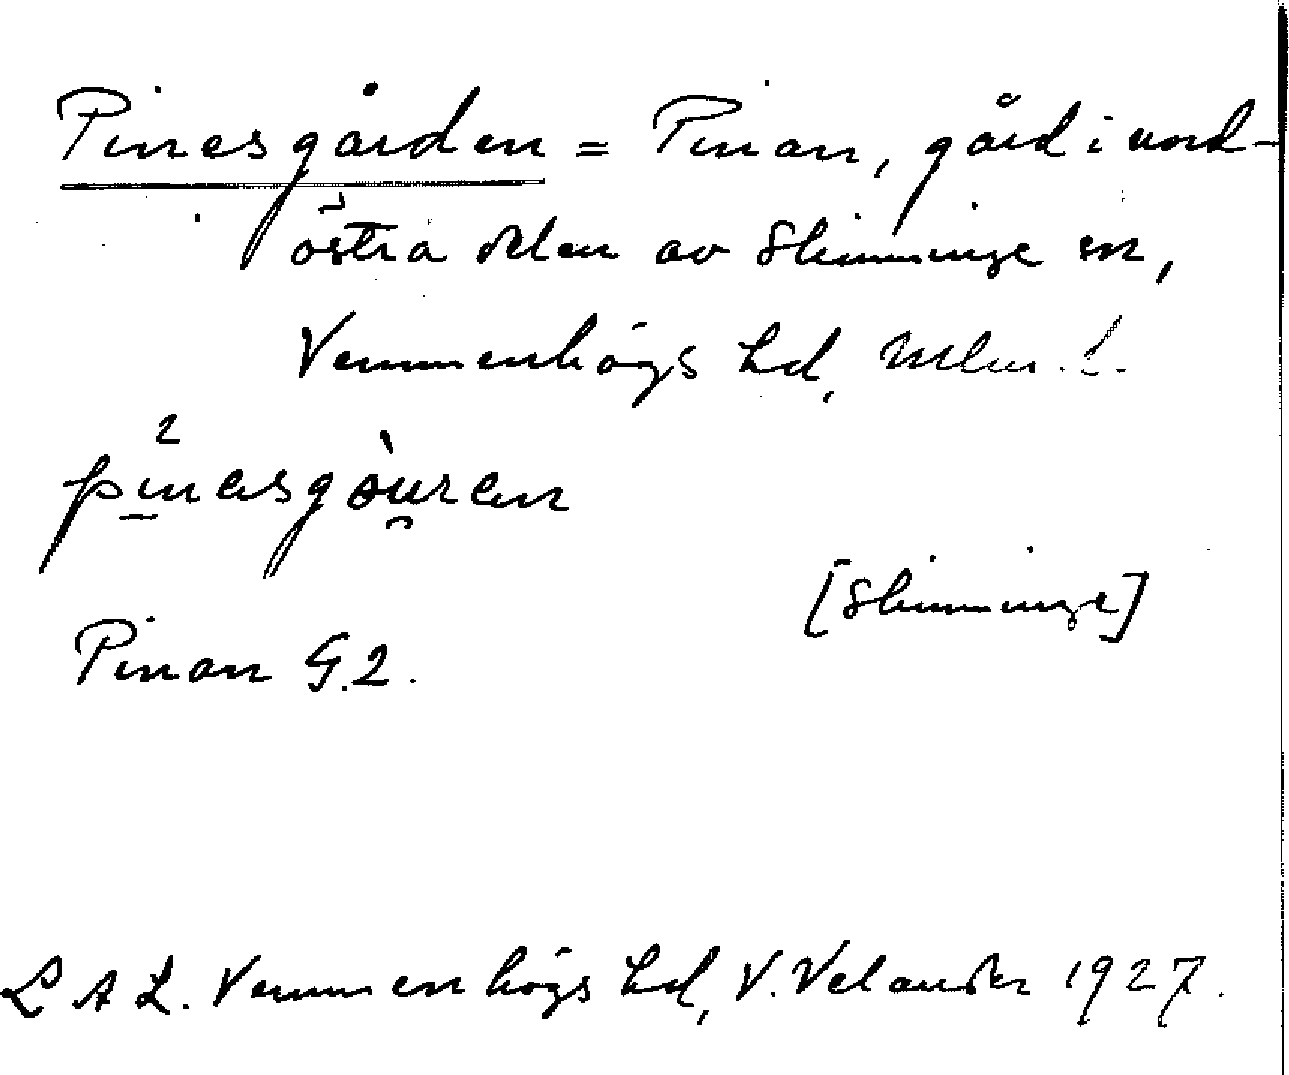 Pinesgården = Pinan, gård i nord-
östra delen av Slimminge sn,
Vemmenhögs hd, Mlm. l.
pinesgòu̯ren
[Slimminge]
Pinan G.2.
L A L. Vemmenhögs hd, V. Velander 1927.